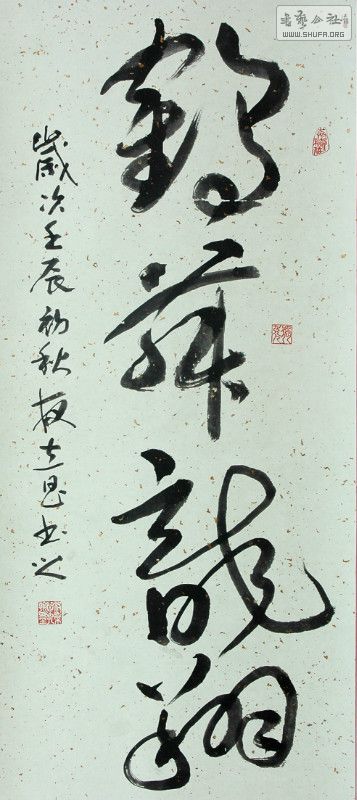 鶴舞龍翔
歲次壬辰初秋 志 书之
书艺公社
WWW.SHUFA.ORG